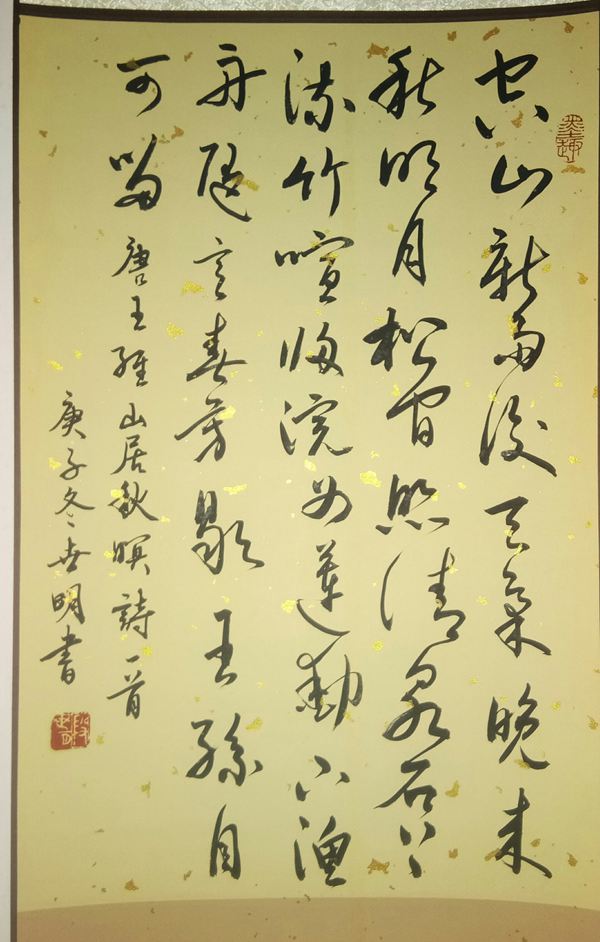 墨趣
空山新雨後天氣晚来
秋明月松間照清泉石上
流竹喧歸浣女蓮動下漁
舟随意春芳歇王孫自
可留唐王維山居秋暝詩一首
庚子冬世明書